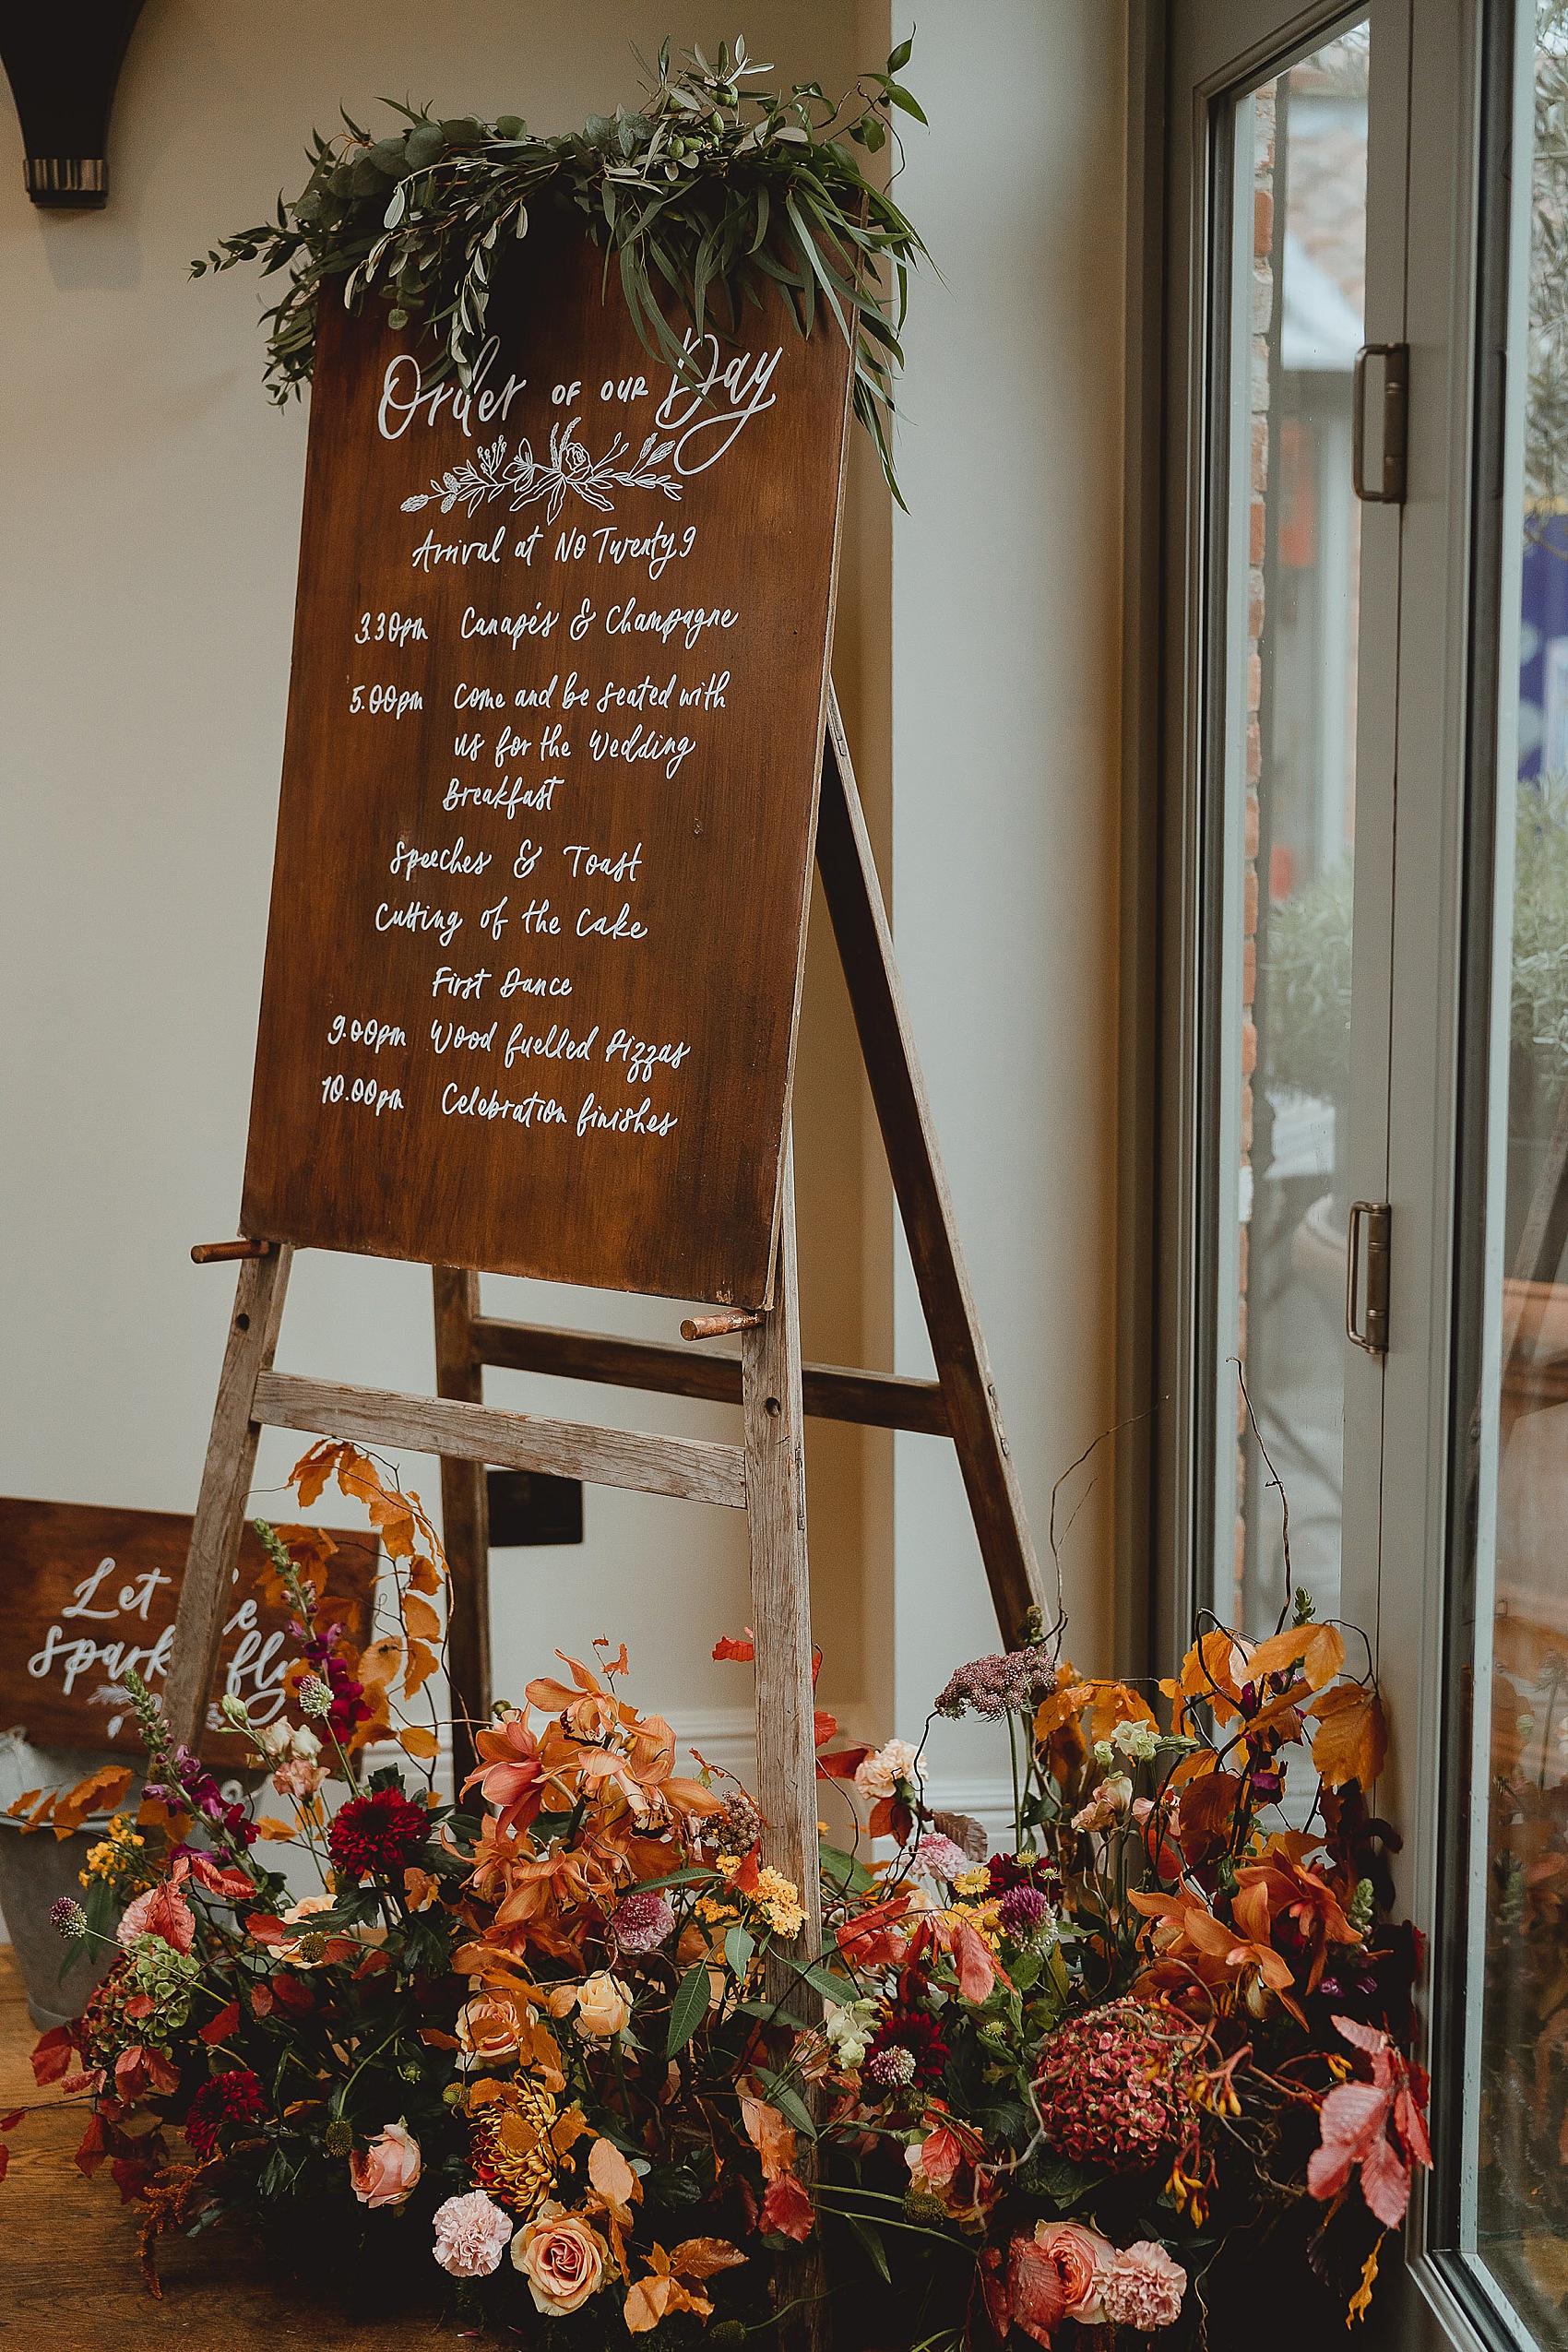 Order OF OUR Day
Arrival at No Twenty9
3.30pm Canapés & Champagne
5.00pm Come and be seated with
us for the Wedding
Breakfast
Speeches & Toast
Cutting of the Cake
First Dance
9.00pm Wood fuelled Pizzas
10.00pm Celebration finishes
Let
fly